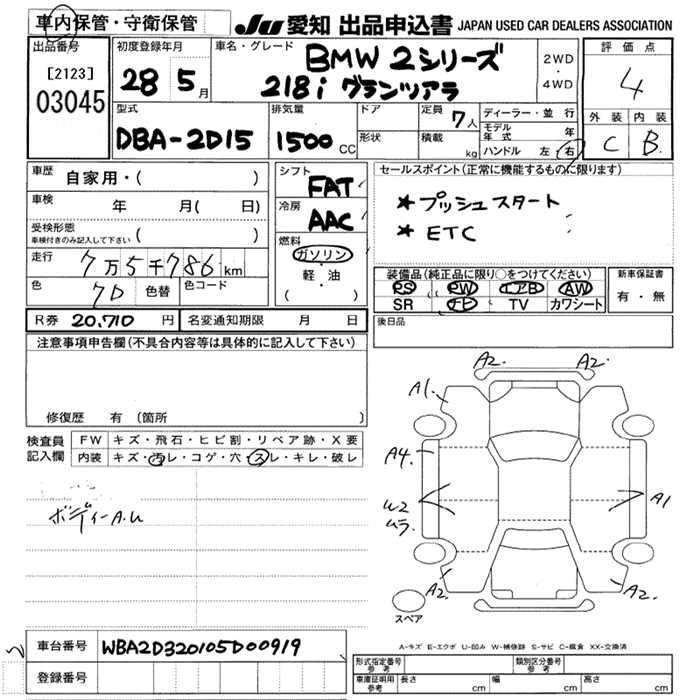 車内保管・守衛保管
JU 愛知 出品申込書 JAPAN USED CAR DEALERS ASSOCIATION
出品番号
[2123]
03045
初度登録年月
28 5 月
車名・グレード
BMW 2シリーズ
218i グランツアラ
2WD
・
4WD
評価点
4
外装 内装
C B
型式
DBA-2D15
排気量
1500 CC
ドア
形状
定員 7人
積載 kg
ディーラー・並行
モデル年式 年
ハンドル 左・右
車歴 自家用・( )
車検 年 月(日)
受検形態
車検付きのみ記入して下さい ( )
走行 7万5千786km
色 7D 色替 色コード
シフト FAT
冷房 AAC
燃料
ガソリン
・
軽・油
( )
セールスポイント(正常に機能するものに限ります)
★ プッシュスタート
★ ETC
装備品(純正品に限り○をつけてください)
PS PW エアB AW
SR ナビ TV カワシート
新車保証書
有・無
R券 20,710 円 名変通知期限 月 日
後日品
注意事項申告欄(不具合内容等は具体的に記入して下さい)
修復歴 有(箇所 )
検査員記入欄
FW キズ・飛石・ヒビ割・リペア跡・X要
内装 キズ・汚レ・コゲ・穴・スレ・キレ・破レ
ボディーA.U
A2 A2
A1
A4
W2
ムラ
A1
A2 A2
スペア
A-キズ E-エクボ U-凹み W-補修跡 S-サビ C-腐食 XX-交換済
車台番号 WBA2D320105D00919
登録番号
形式指定番号 参考
類別区分番号 参考
車庫証明用 参考 長さ cm 幅 cm 高さ cm